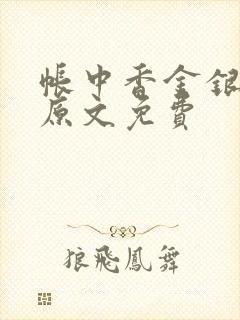 帳中香金銀
原文免費
狼飛鳳舞